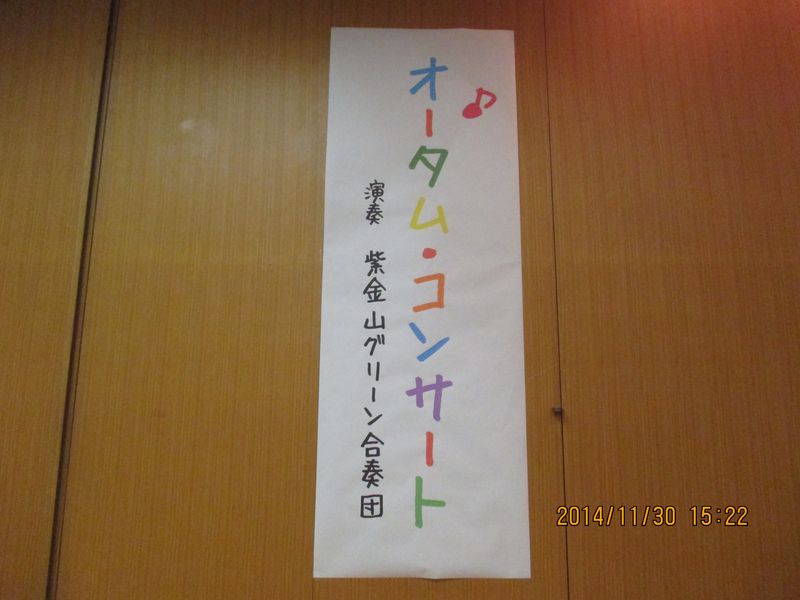 オータム・コンサート
演奏 紫金山グリーン合奏団
2014/11/30 15:22